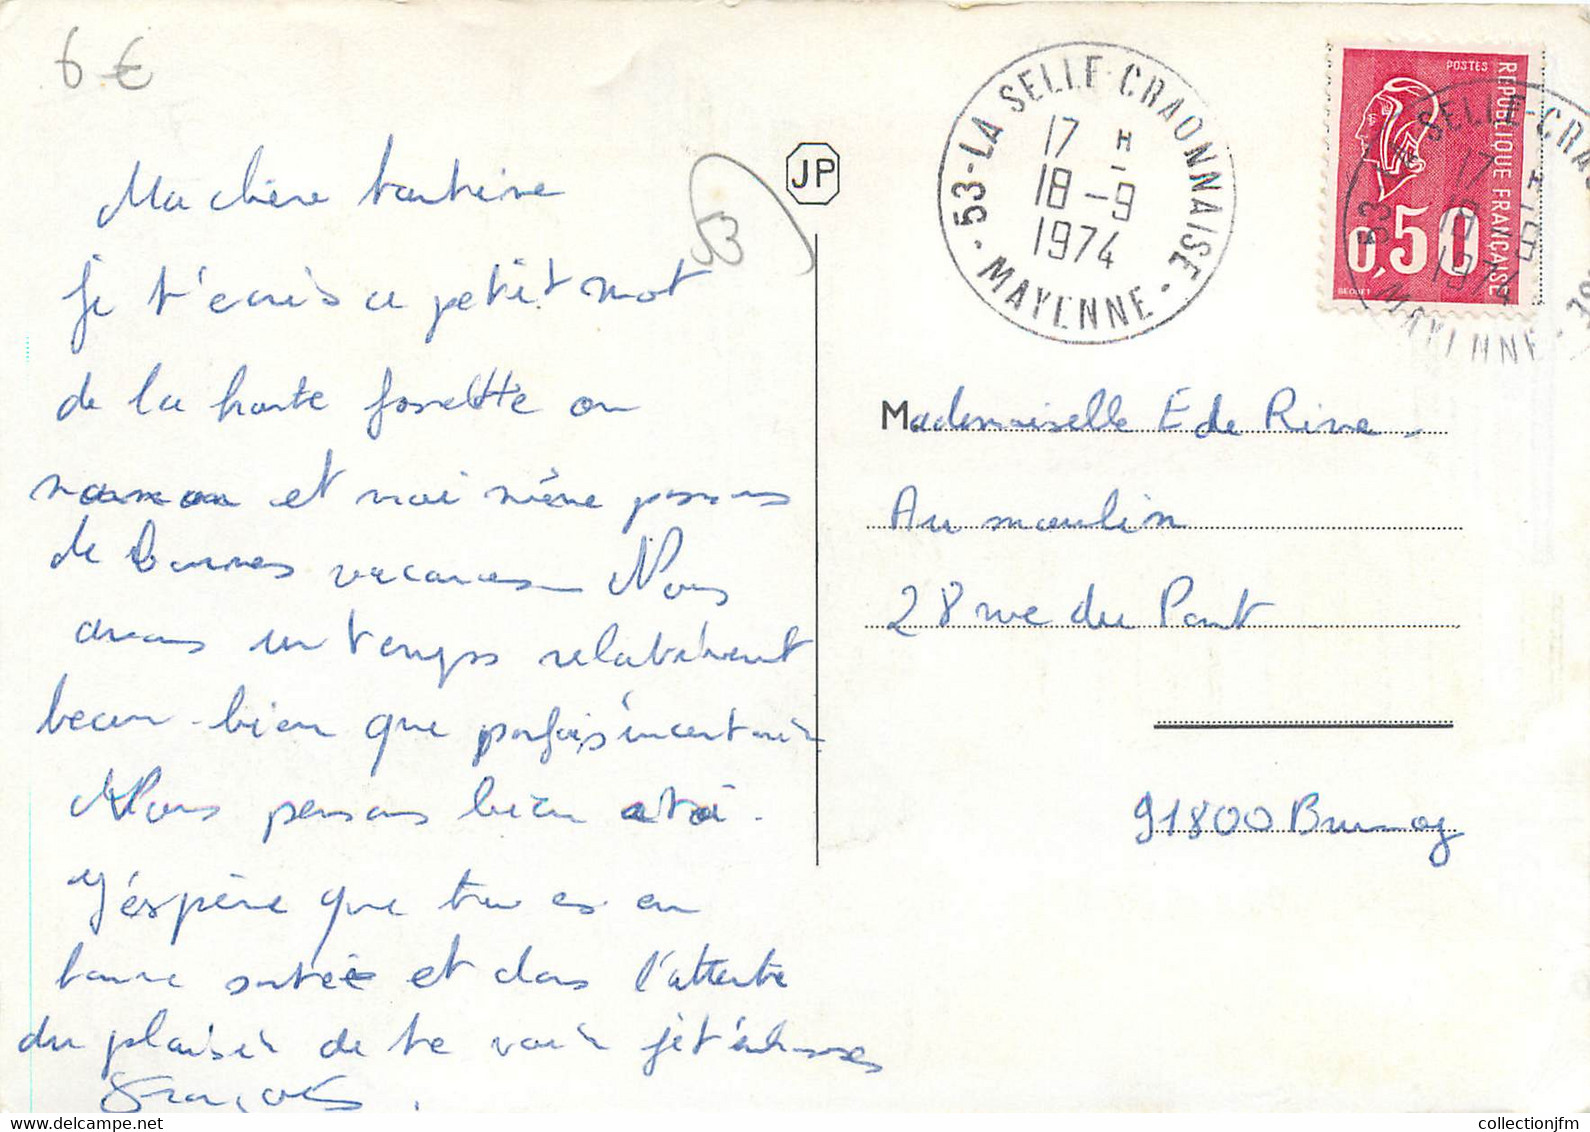 6 €
JP
53
53-LA SELLE-CRAONNAISE
17 H
18-9
1974
- MAYENNE -
POSTES
REPUBLIQUE FRANÇAISE
0,50
BEQUET
Ma chère tantine
je t'écris ce petit mot
de la haute on
et moi même passons
de bonnes vacances Nous
avons un temps relativement
beau bien que parfois incertain
Nous pensons bien à toi.
J'éspère que tu es en
bonne santée et dans l'attente
du plaisir de te voir je t'embrasse
François.
Mademoiselle E de Rive
Au moulin
28 rue du Pont
91800 Brunoy
collectionjfm